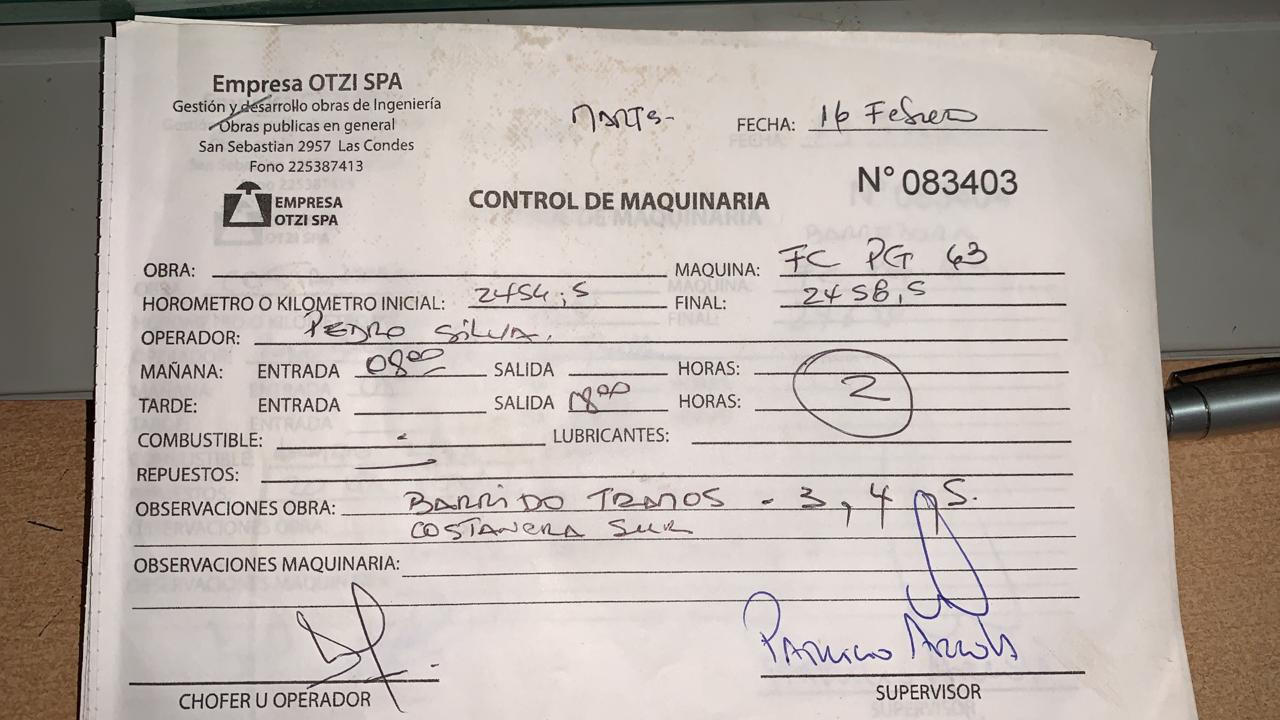 Empresa OTZI SPA
Gestión y desarrollo obras de Ingeniería
Obras publicas en general
San Sebastian 2957 Las Condes
Fono 225387413
EMPRESA
OTZI SPA
MARTS-
FECHA: 16 Febrero
N° 083403
CONTROL DE MAQUINARIA
OBRA: MAQUINA: FC PG 63
HOROMETRO O KILOMETRO INICIAL: 2454,5 FINAL: 2458,5
OPERADOR: PEDRO SILVA.
MAÑANA: ENTRADA 0800 SALIDA HORAS:
TARDE: ENTRADA SALIDA 1800 HORAS: 2
COMBUSTIBLE: - LUBRICANTES:
REPUESTOS: —
OBSERVACIONES OBRA: BARRIDO TRAMOS - 3, 4, 5.
COSTANERA SUR
OBSERVACIONES MAQUINARIA:
PATRICIO
CHOFER U OPERADOR
SUPERVISOR